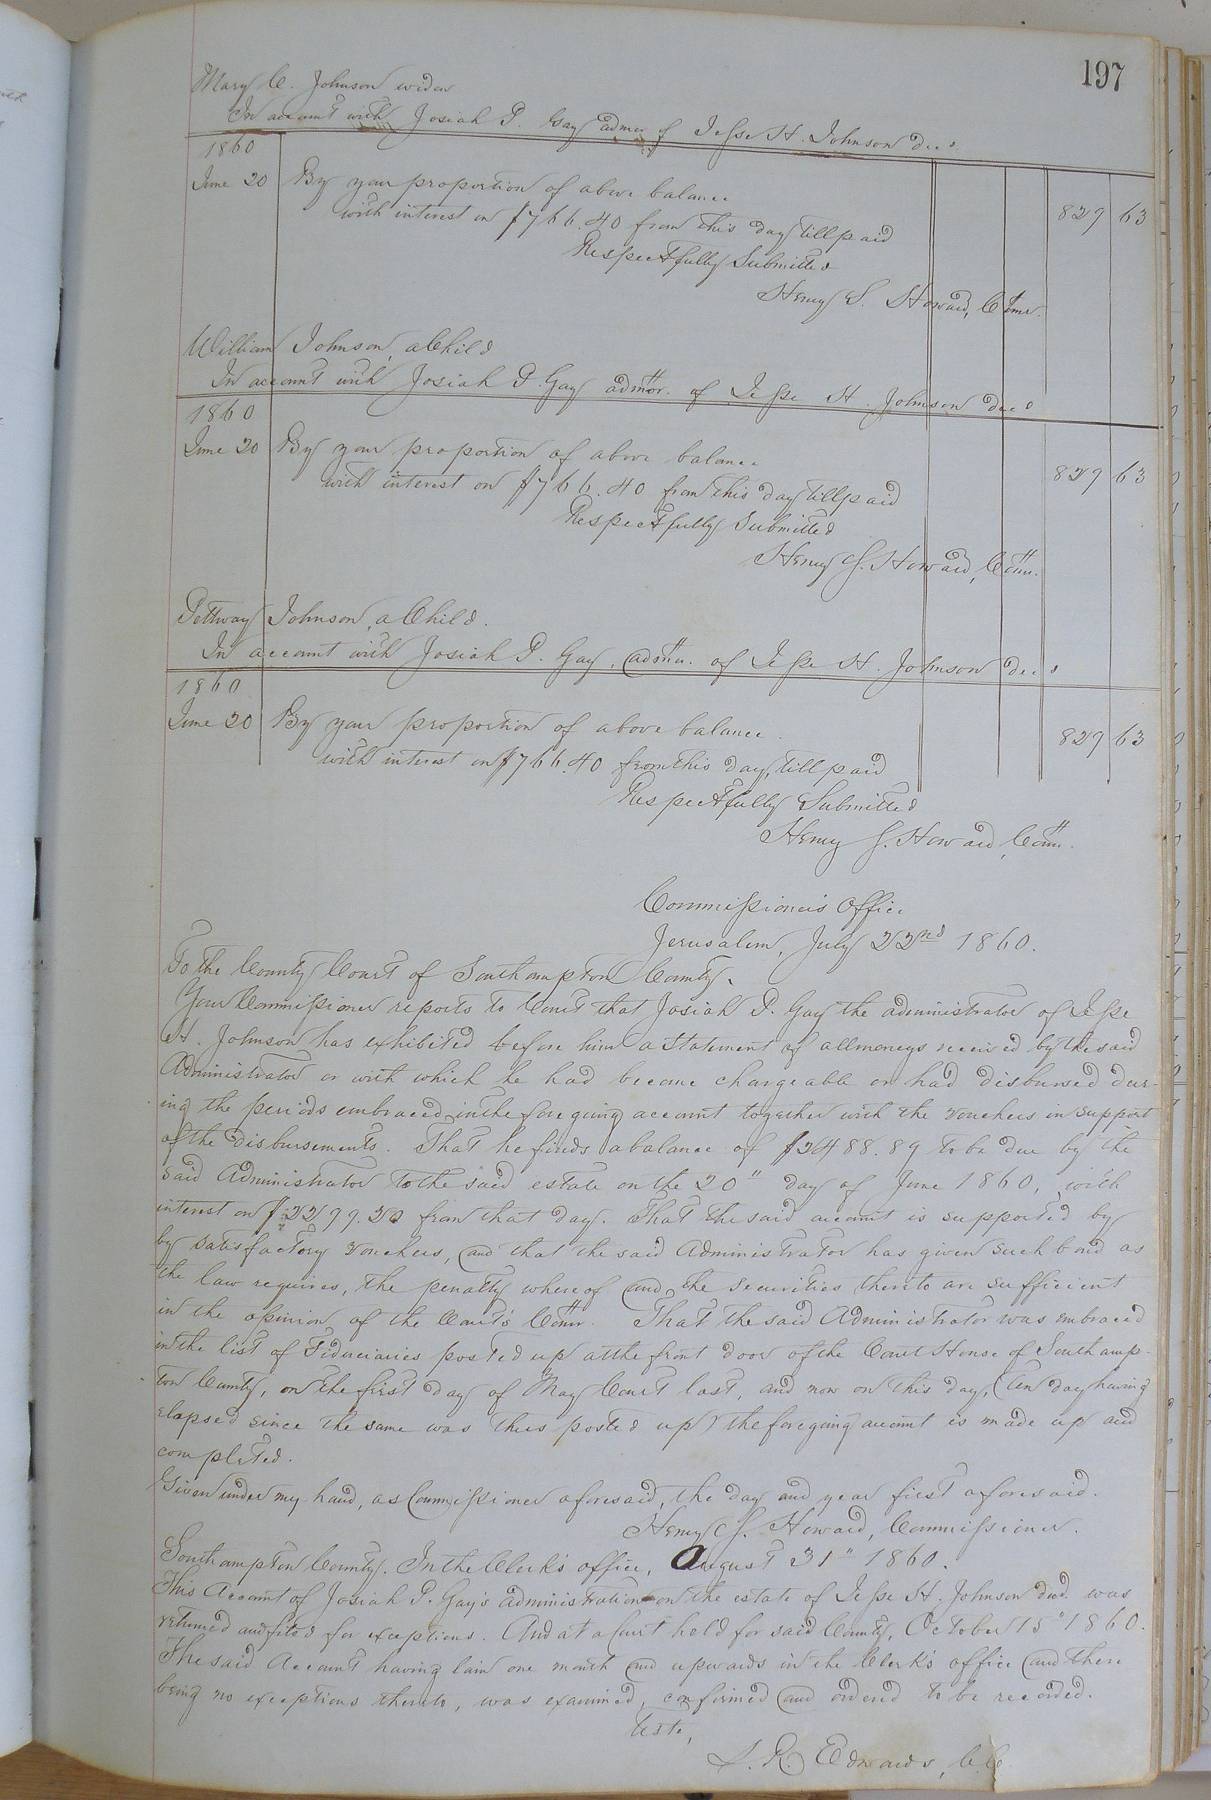 197
Mary C. Johnson widow
In account with Josiah P. Gay admr of Jesse H. Johnson decd
1860
June 20 By your proportion of above balance
with interest on $766.40 from this day till paid 829 63
Respectfully Submitted
Henry S. Howard, Comr.
William Johnson, a Child
In account with Josiah P. Gay admor. of Jesse H. Johnson decd
1860
June 20 By your proportion of above balance
with interest on $766.40 from this day till paid 829 63
Respectfully Submitted
Henry S. Howard, Comr.
Pettway Johnson, a Child.
In account with Josiah P. Gay, admr. of Jesse H. Johnson decd
1860
June 20 By your proportion of above balance
with interest on $766.40 from this day, till paid 829 63
Respectfully Submitted
Henry S. Howard, Comr.
Commissioner's Office
Jerusalem, July 22nd 1860.
To the County Court of Southampton County.
Your Commissioner reports to Court that Josiah P. Gay the administrator of Jesse
H. Johnson has exhibited before him a Statement of all moneys received by the said
Administrator or with which he had become chargeable or had disbursed dur-
ing the periods embraced in the foregoing account together with the vouchers in support
of the disbursements. That he finds a balance of $2488.89 to be due by the
said Administrator to the said estate on the 20" day of June 1860, with
interest on $2299.20 from that day. That the said account is supported by
by satisfactory vouchers, and that the said Administrator has given such bond as
the law requires, the penalty whereof and the securities thereto are sufficient
in the opinion of the Court's Comr. That the said Administrator was embraced
in the list of Fiduciaries posted up at the front door of the Court House of Southamp-
ton County, on the first day of May Court last, and now on this day, (ten day having
elapsed since the same was thus posted up) the foregoing account is made up and
completed.
Given under my hand, as Commissioner aforesaid, the day and year first aforesaid.
Henry S. Howard, Commissioner.
Southampton County. In the Clerk's office, August 31" 1860.
This Account of Josiah P. Gay's administration on the estate of Jesse H. Johnson decd. was
returned and filed for exceptions. And at a Court held for said County, October 15" 1860.
The said Account having lain one month and upwards in the Clerk's office and there
being no exceptions thereto, was examined, confirmed and ordered to be recorded.
Teste,
L. R. Edwards, C.C.